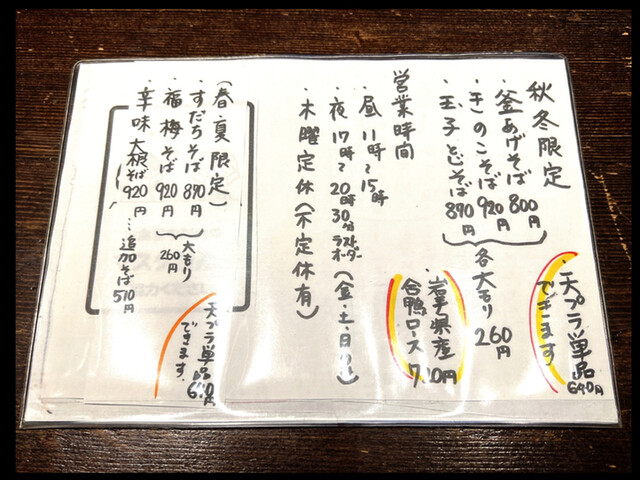 秋冬限定
・釜あげそば 800円
・きのこそば 920円
・玉子とじそば 870円
各大もり 260円
・天プラ単品 640円
できます
営業時間
・昼 11時〜15時
・夜 17時〜20時30分ラストオーダー(金・土・日のみ)
・木曜定休(不定休有)
・岩手県産
合鴨ロース 710円
(春・夏限定)
・すだちそば 870円
・福梅そば 920円
大もり 260円
・辛味大根そば 920円 …追加そば570円
・天プラ単品
できます。